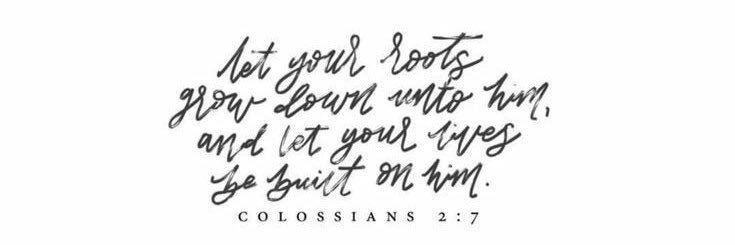 let your roots
grow down unto him,
and let your lives
be built on him.
COLOSSIANS 2:7